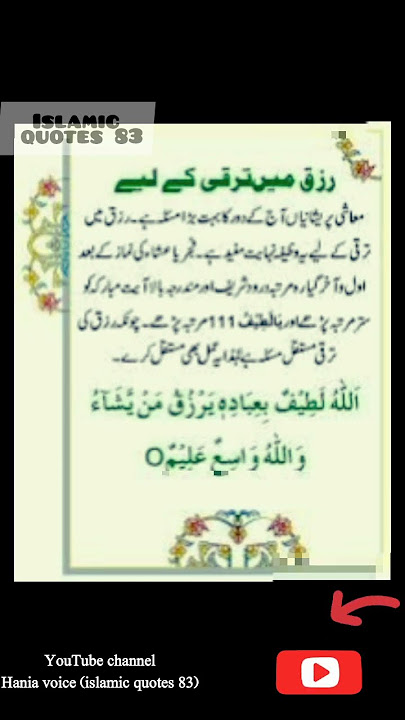 ISLAMIC
QUOTES 83
رزق میں ترقی کے لیے
معاشی پریشانیاں آج کے دور کا بہت بڑا مسئلہ ہے۔ رزق میں
ترقی کے لیے یہ وظیفہ نہایت مفید ہے۔ فجر یا عشاء کی نماز کے بعد
اول و آخر گیارہ مرتبہ درود شریف اور مندرجہ بالا آیت مبارکہ کو
ستر مرتبہ پڑھے اور یَالَطِیْفُ 111 مرتبہ پڑھے۔ چونکہ رزق کی
ترقی مستقل مسئلہ ہے لہٰذا یہ عمل بھی مستقل کرے۔
اَللّٰهُ لَطِیْفٌۢ بِعِبَادِهٖ یَرْزُقُ مَنْ یَّشَآءُ
وَاللّٰهُ وَاسِعٌ عَلِیْمٌ
YouTube channel
Hania voice (islamic quotes 83)